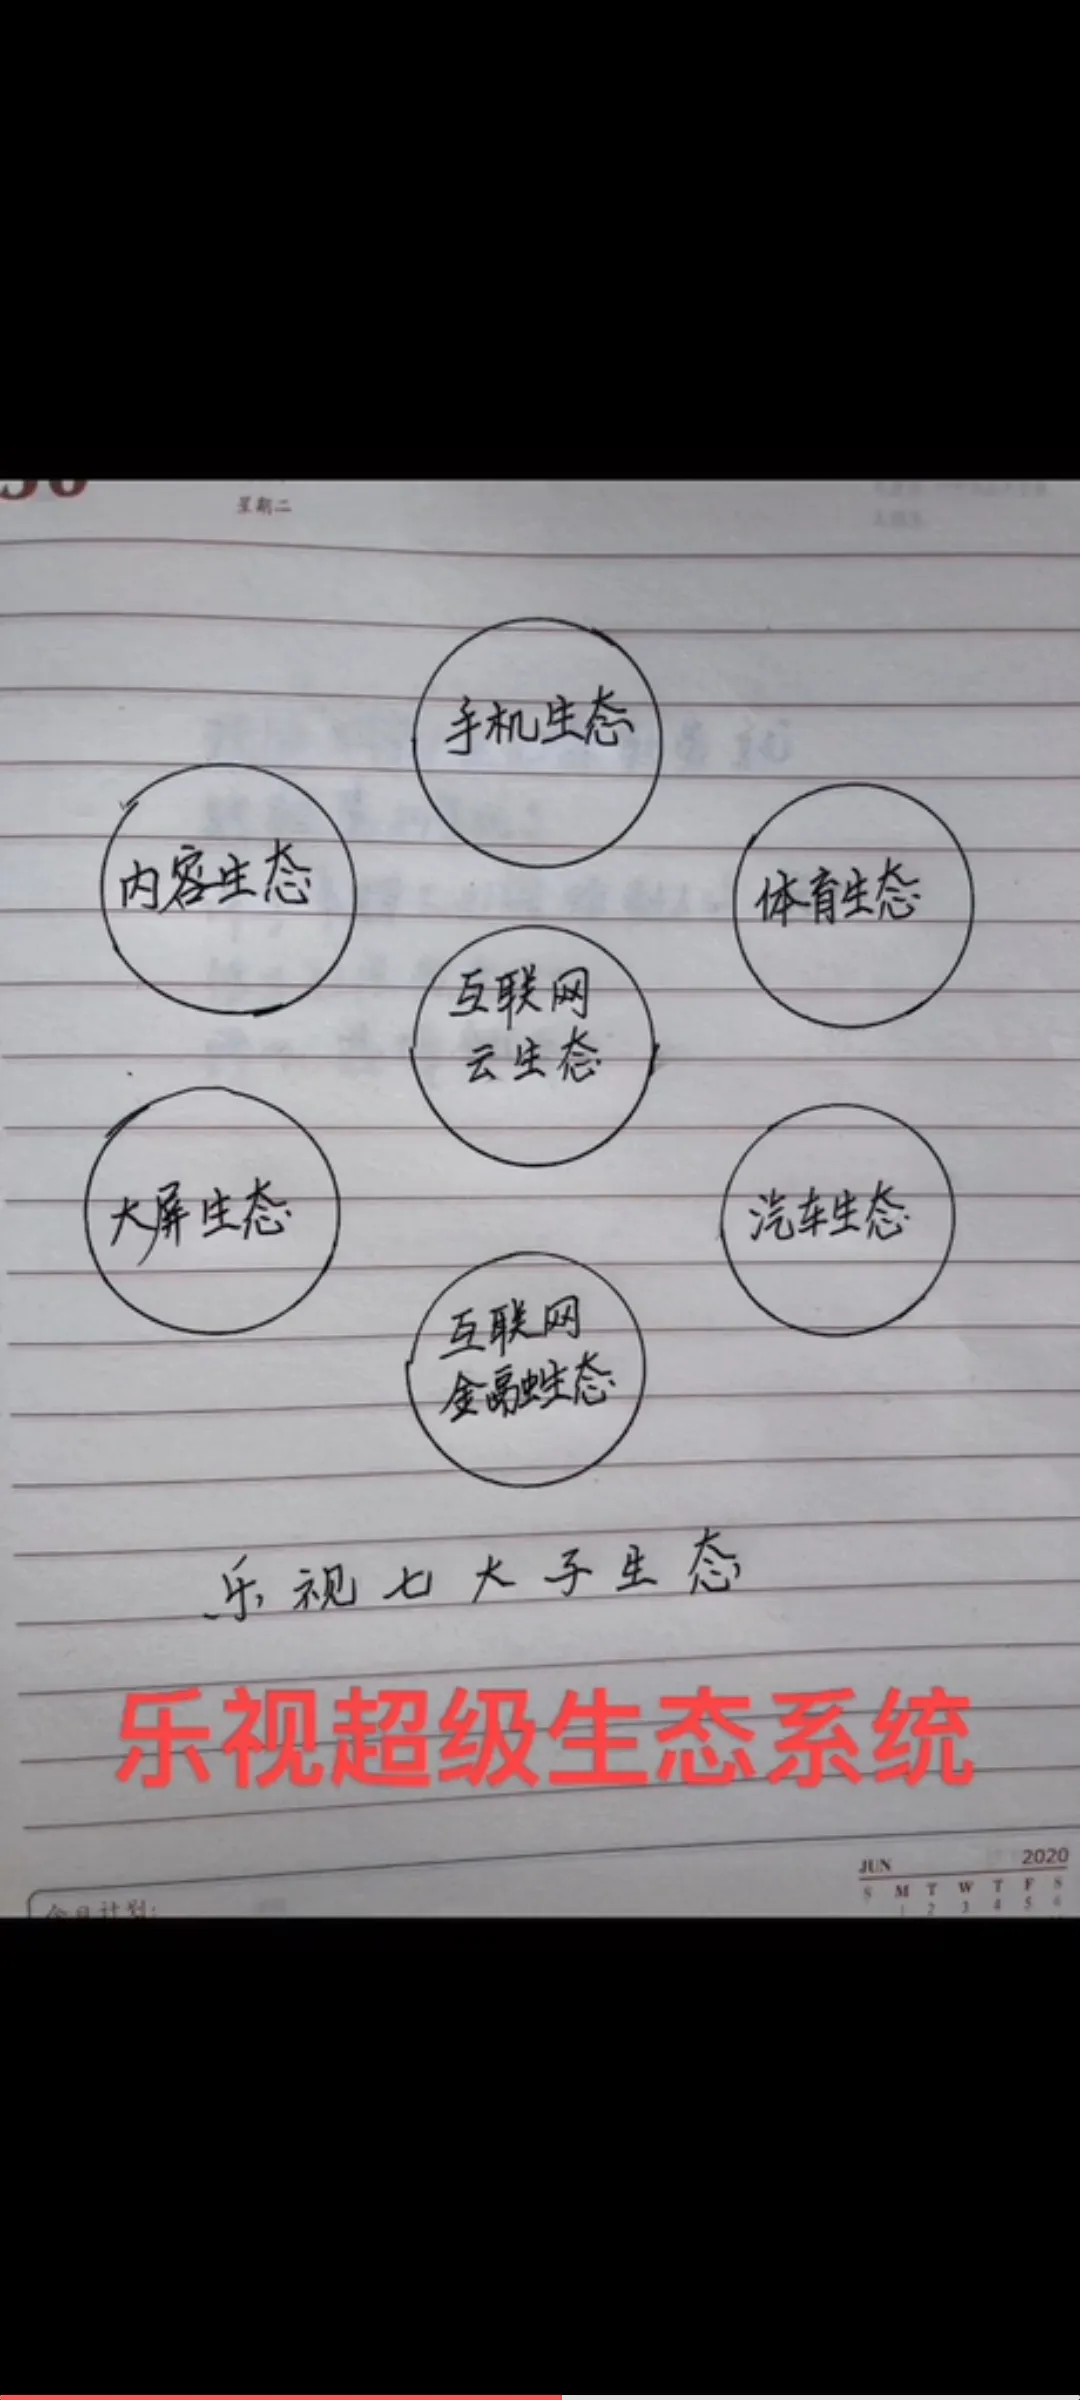 星期二
手机生态
内容生态
体育生态
互联网
云生态
大屏生态
汽车生态
互联网
金融生态
乐视七大子生态
乐视超级生态系统
JUN 2020
S M T W T F S
1 2 3 4 5 6
今日计划: